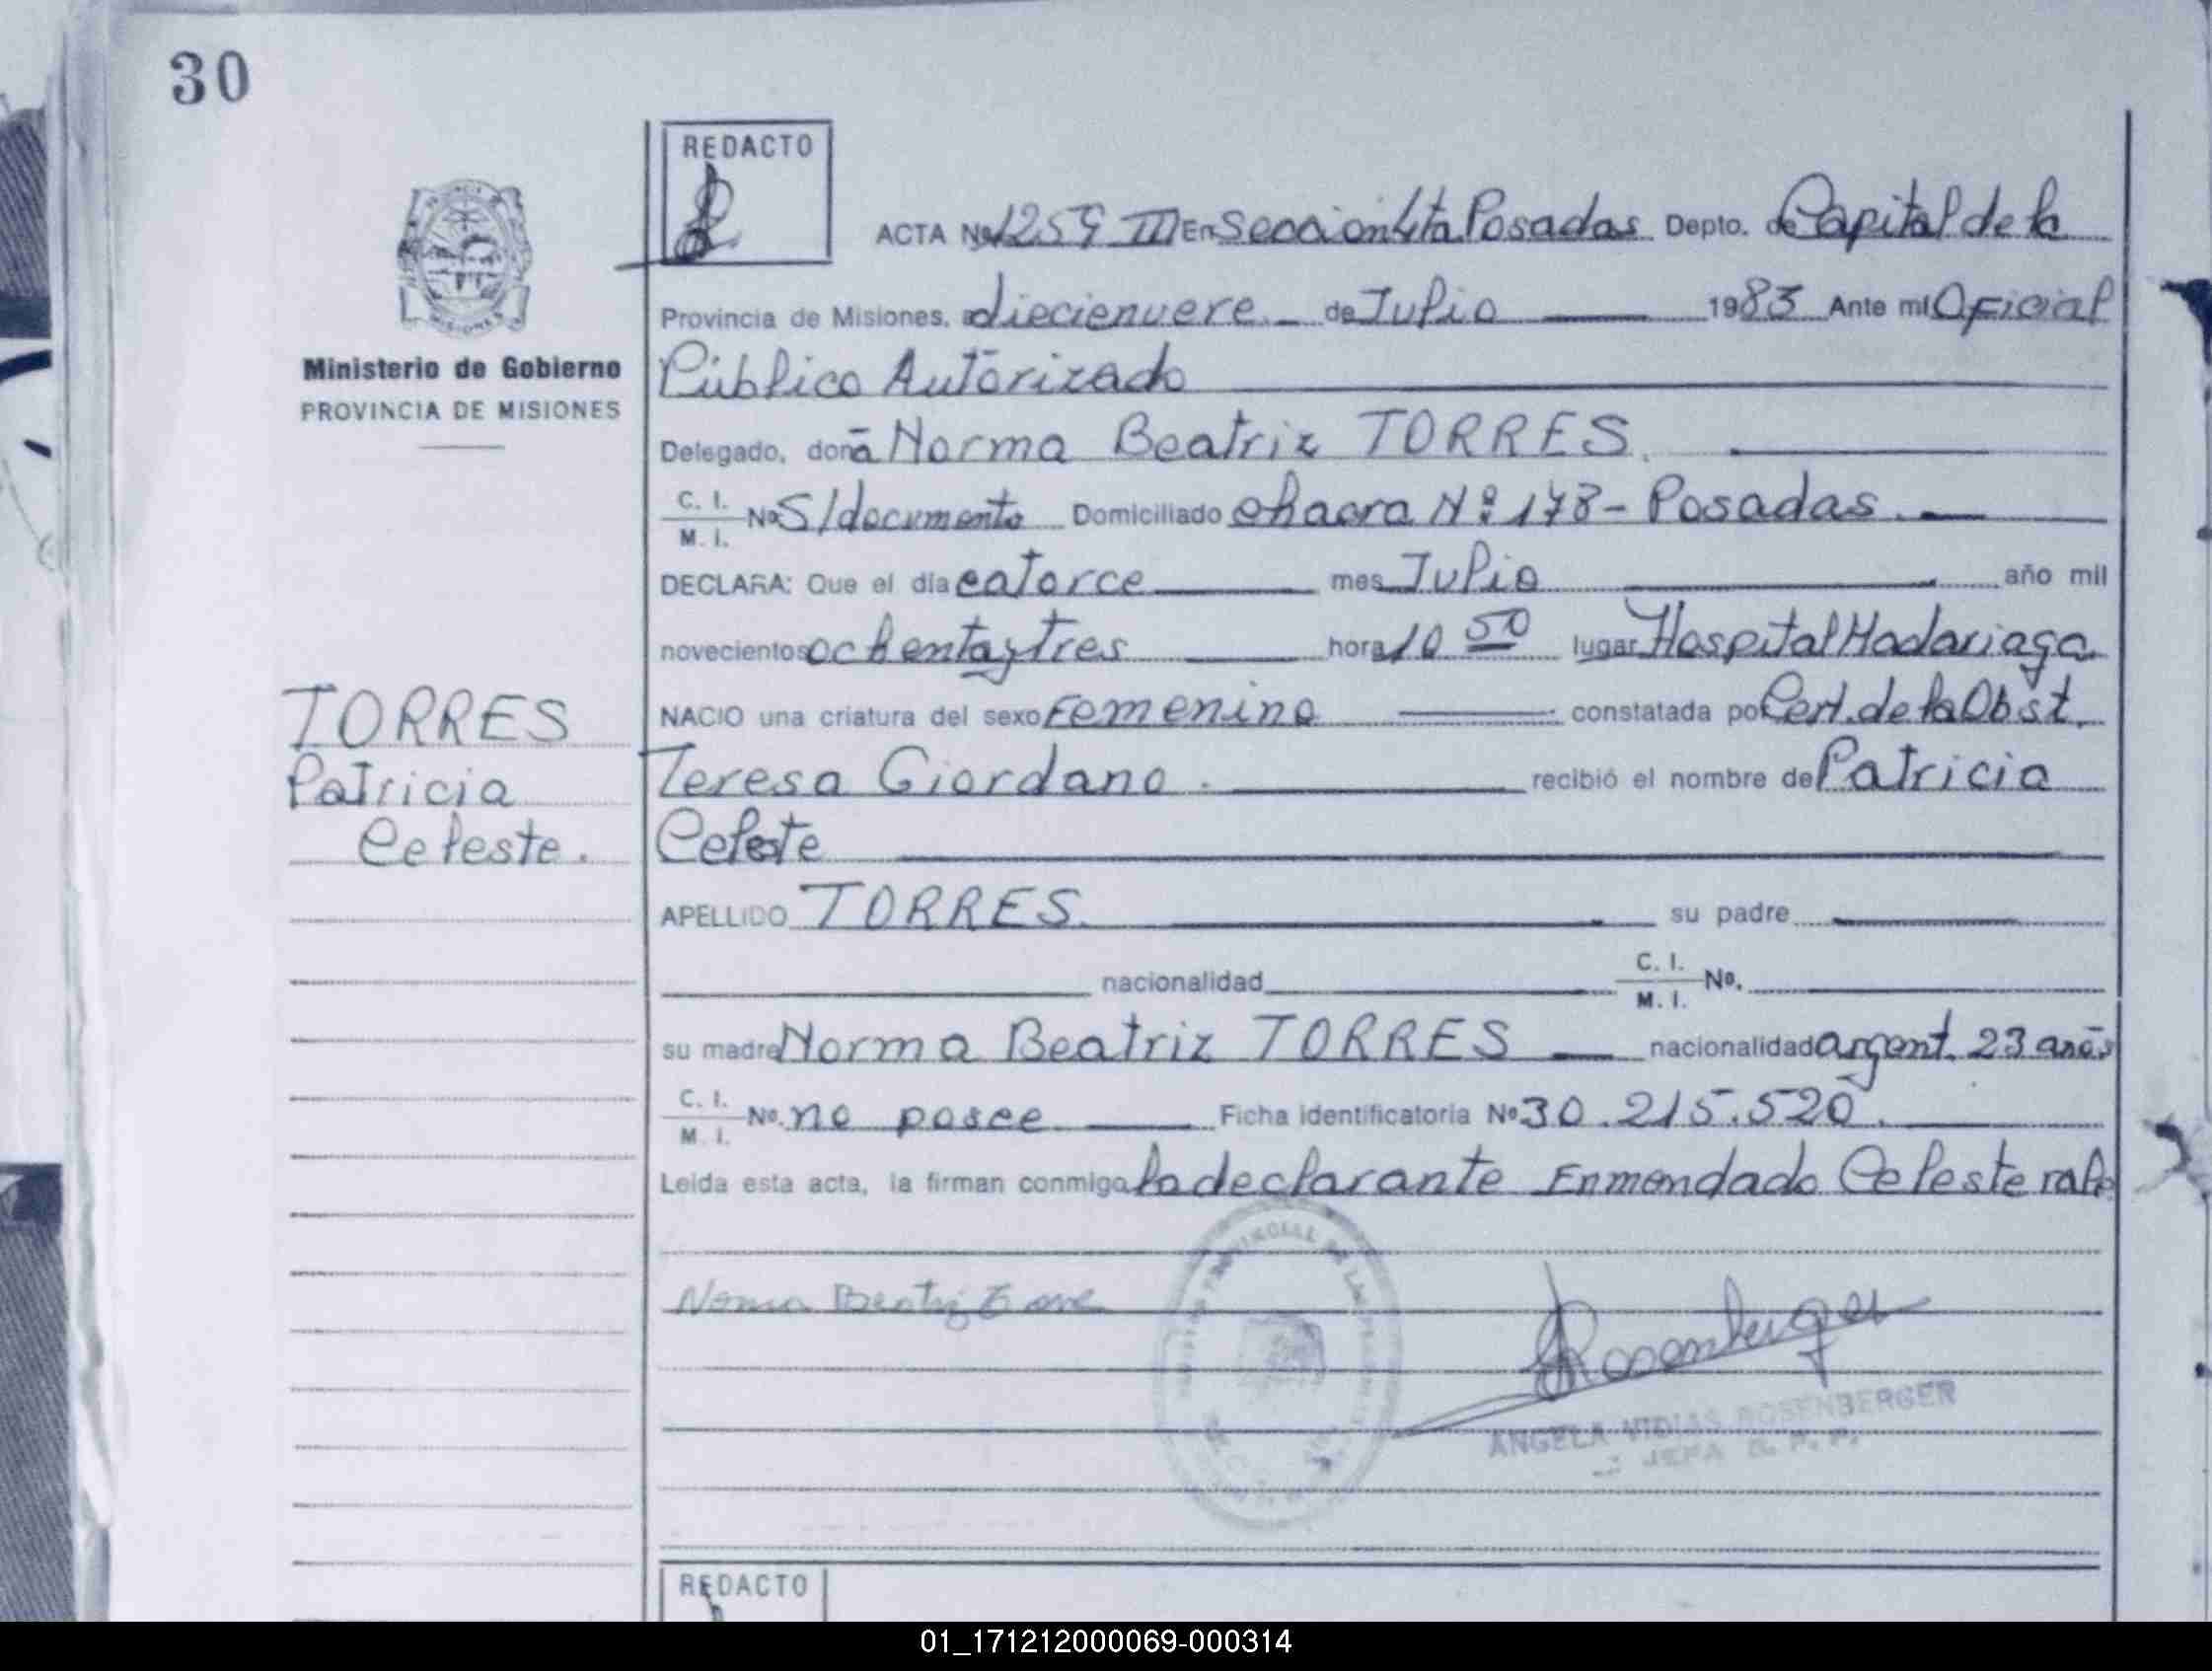 30
REDACTO
ACTA Nº 1259 III En Sección 4ta Posadas Depto. de Capital de la
Provincia de Misiones, a diecienueve de Julio 1983 Ante mí Oficial
Público Autorizado
Ministerio de Gobierno
PROVINCIA DE MISIONES
Delegado, doña Norma Beatriz TORRES.
C. I.
M. I. Nº S/documento Domiciliado chacra Nº 178 - Posadas.
DECLARA: Que el día catorce mes Julio año mil
novecientos ochentaytres hora 10 50 lugar Hospital Madariaga
NACIO una criatura del sexo Femenino constatada por Cert. de la Obst.
TORRES
Patricia
Celeste.
Teresa Giordano. recibió el nombre de Patricia
Celeste
APELLIDO TORRES. su padre
nacionalidad C. I.
M. I. Nº.
su madre Norma Beatriz TORRES nacionalidad argent. 23 años
C. I.
M. I. Nº. no posee Ficha identificatoria Nº 30.215.520.
Leida esta acta, la firman conmigo la declarante Enmendado Celeste vale
Norma Beatriz
Rosenberger
ANGELA ROSENBERGER
JEFA
REDACTO
01_171212000069-000314